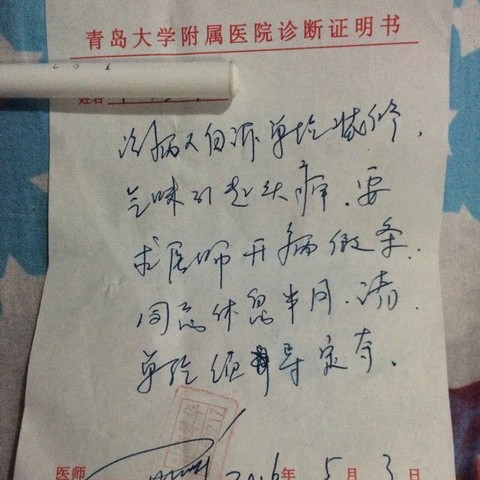 青岛大学附属医院诊断证明书
姓名
病人自诉单位装修,
气味引起头痛,要
求医师开病假条,
同意休息半月,请
单位领导定夺。
医师 2016年5月3日